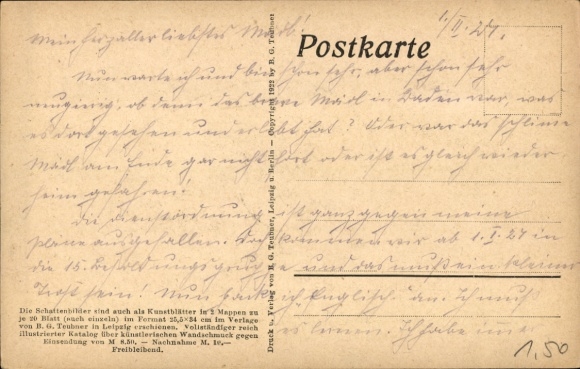 1./II. 27.
Mein herzallerliebstes Mädl!
Postkarte
Nun warte ich und bin schon sehr, aber schon sehr
neugierig, ob denn das brave Mädl in Baden war, was
es dort gesehen und erlebt hat? Oder war das schlimme
Mädl am Ende gar nicht dort oder ist es gleich wieder
heim gefahren.
Die Dienstordnung ist ganz gegen meine
Pläne ausgefallen. Doch kommen wir ab 1.I.27 in
die 15. Besoldungsgruppe und das muß ein kleiner
Trost sein! Nun Englisch an. Ich muß
es lernen. Ich habe
Die Schattenbilder sind auch als Kunstblätter in 2 Mappen zu
je 20 Blatt (auch einzeln) im Format 25,5×34 cm im Verlage
von B. G. Teubner in Leipzig erschienen. Vollständiger reich
illustrierter Katalog über künstlerischen Wandschmuck gegen
Einsendung von M 8.50, — Nachnahme M. 10,—
Freibleibend.
Druck u. Verlag von B. G. Teubner, Leipzig u. Berlin — Copyright 1922 by B. G. Teubner
1,50